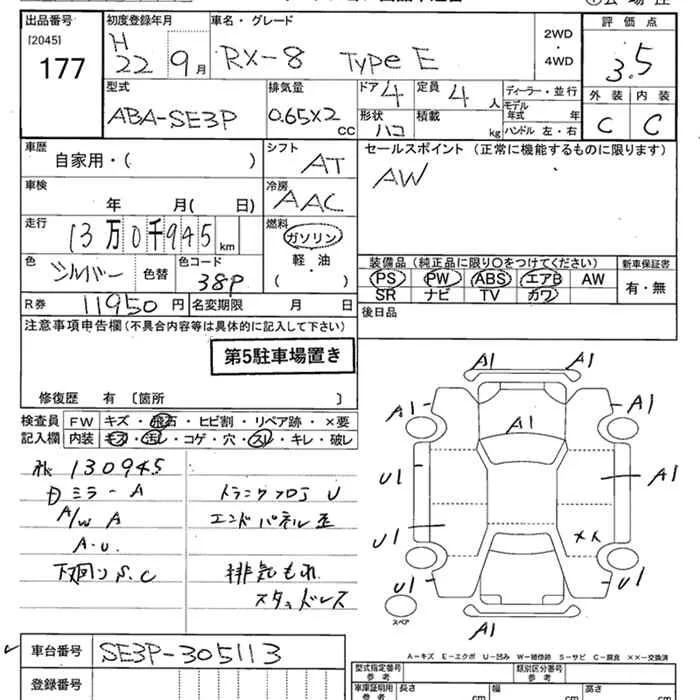 出品番号 初度登録年月 車名・グレード 2WD・4WD 評価点
[2045] 177 H22 9月 RX-8 TypeE 3.5
外装 内装
C C
型式 排気量 ドア 定員 ディーラー・並行
ABA-SE3P 0.65×2 CC 4 4人 モデル年式 年
形状 ハコ 積載 kg ハンドル 左・右
車歴 シフト セールスポイント (正常に機能するものに限ります)
自家用・( ) AT AW
車検 冷房
年 月( 日) AAC
走行 燃料
13万0千945km ガソリン
軽・油
( )
色 シルバー 色替 色コード 38P
装備品 (純正品に限り〇をつけてください) 新車保証書
PS PW ABS エアB AW 有・無
SR ナビ TV カワ
R券 11950円 名変期限 月 日 後日品
注意事項申告欄(不具合内容等は具体的に記入して下さい)
第5駐車場置き
修復歴 有 〔箇所 〕
検査員 FW キズ・飛石・ヒビ割・リペア跡・×要
記入欄 内装 キズ・汚レ・コゲ・穴・スレ・キレ・破レ
130945
ミラーA トランクフロア U
A/W A エンドパネル歪
A・U
下廻りS.C 排気もれ
スタッドレス
A1
A1 A1
A1
U1 A1
U1 ××
U1 U1
A1
スペア
A-キズ E-エクボ U-凹み W-補修跡 S-サビ C-腐食 ××-交換済
車台番号 SE3P-305113
登録番号
型式指定番号 参考 類別区分番号 参考
車庫証明用 参考 長さ cm 幅 cm 高さ cm